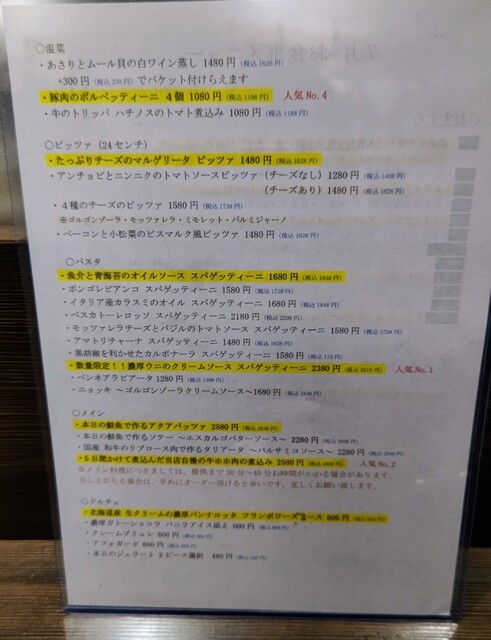 ○温菜
・あさりとムール貝の白ワイン蒸し 1480円 (税込1628円)
+300円 (税込330円) でバケット付けらえます
・豚肉のポルペッティーニ 4個 1080円 (税込1188円) 人気No.4
・牛のトリッパ ハチノスのトマト煮込み 1080円 (税込1188円)
○ピッツァ (24センチ)
・たっぷりチーズのマルゲリータ ピッツァ 1480円 (税込1628円)
・アンチョビとニンニクのトマトソースピッツァ (チーズなし) 1280円 (税込1408円)
(チーズあり) 1480円 (税込1628円)
・4種のチーズのピッツァ 1580円 (税込1738円)
※ゴルゴンゾーラ・モッツァレラ・ミモレット・パルミジャーノ
・ベーコンと小松菜のビスマルク風ピッツァ 1480円 (税込1628円)
○パスタ
・魚介と青海苔のオイルソース スパゲッティーニ 1680円 (税込1848円)
・ボンゴレビアンコ スパゲッティーニ 1580円 (税込1738円)
・イタリア産カラスミのオイル スパゲッティーニ 1680円 (税込1848円)
・ペスカトーレロッソ スパゲッティーニ 2180円 (税込2398円)
・モッツァレラチーズとバジルのトマトソース スパゲッティーニ 1580円 (税込1738円)
・アマトリチャーナ スパゲッティーニ 1480円 (税込1628円)
・黒胡椒を利かせたカルボナーラ スパゲッティーニ 1580円 (税込173円)
・数量限定!!濃厚ウニのクリームソース スパゲッティーニ 2380円 (税込2618円) 人気No.1
・ペンネアラビアータ 1280円 (税込1408円)
・ニョッキ ～ゴルゴンゾーラクリームソース～1680円 (税込1848円)
○メイン
・本日の鮮魚で作るアクアパッツァ 2580円 (税込2838円)
・本日の鮮魚で作るソテー ～エスカルゴバターソース～ 2280円
・国産 和牛のリブロース肉で作るタリアータ ～バルサミコソース～ 2280円
・5日間かけて煮込んだ当店自慢の牛ホホ肉の煮込み 2580円 人気No.2
※メイン料理につきましては、提供まで30分～40分お時間がかかる場合があります。
召し上がらる場合は、早めにオーダー頂けると幸いです。宜しくお願い致します。
○ドルチェ
・北海道産 生クリームの濃厚パンナコッタ フランボワーズソース 600円
・濃厚ガトーショコラ バニラアイス添え 600円
・クレームブリュレ 600円
・アフォガード 600円
・本日のジェラート 2ピース選択 480円